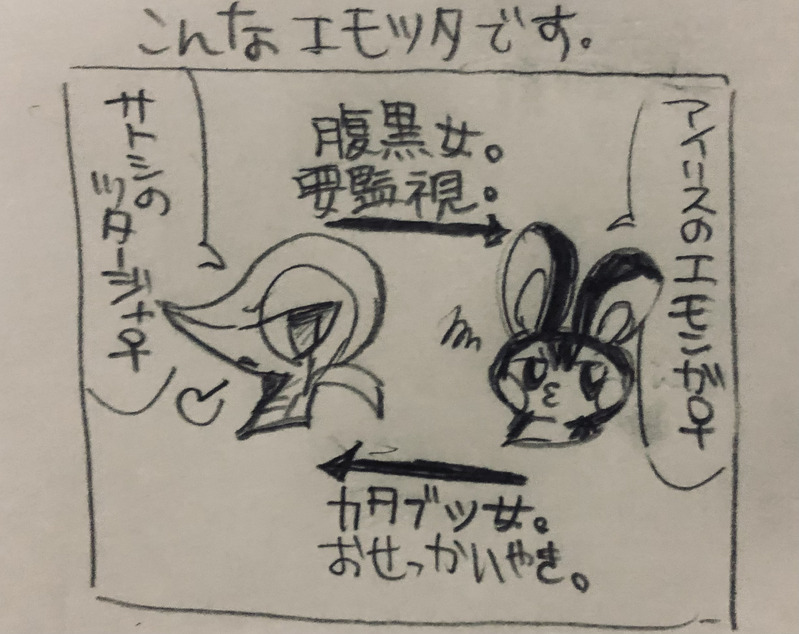 こんなエモツタです。
アイリスのエモンガ♀
腹黒女。
要監視。
サトシの
ツタージャ♀
カタブツ女。
おせっかいやき。